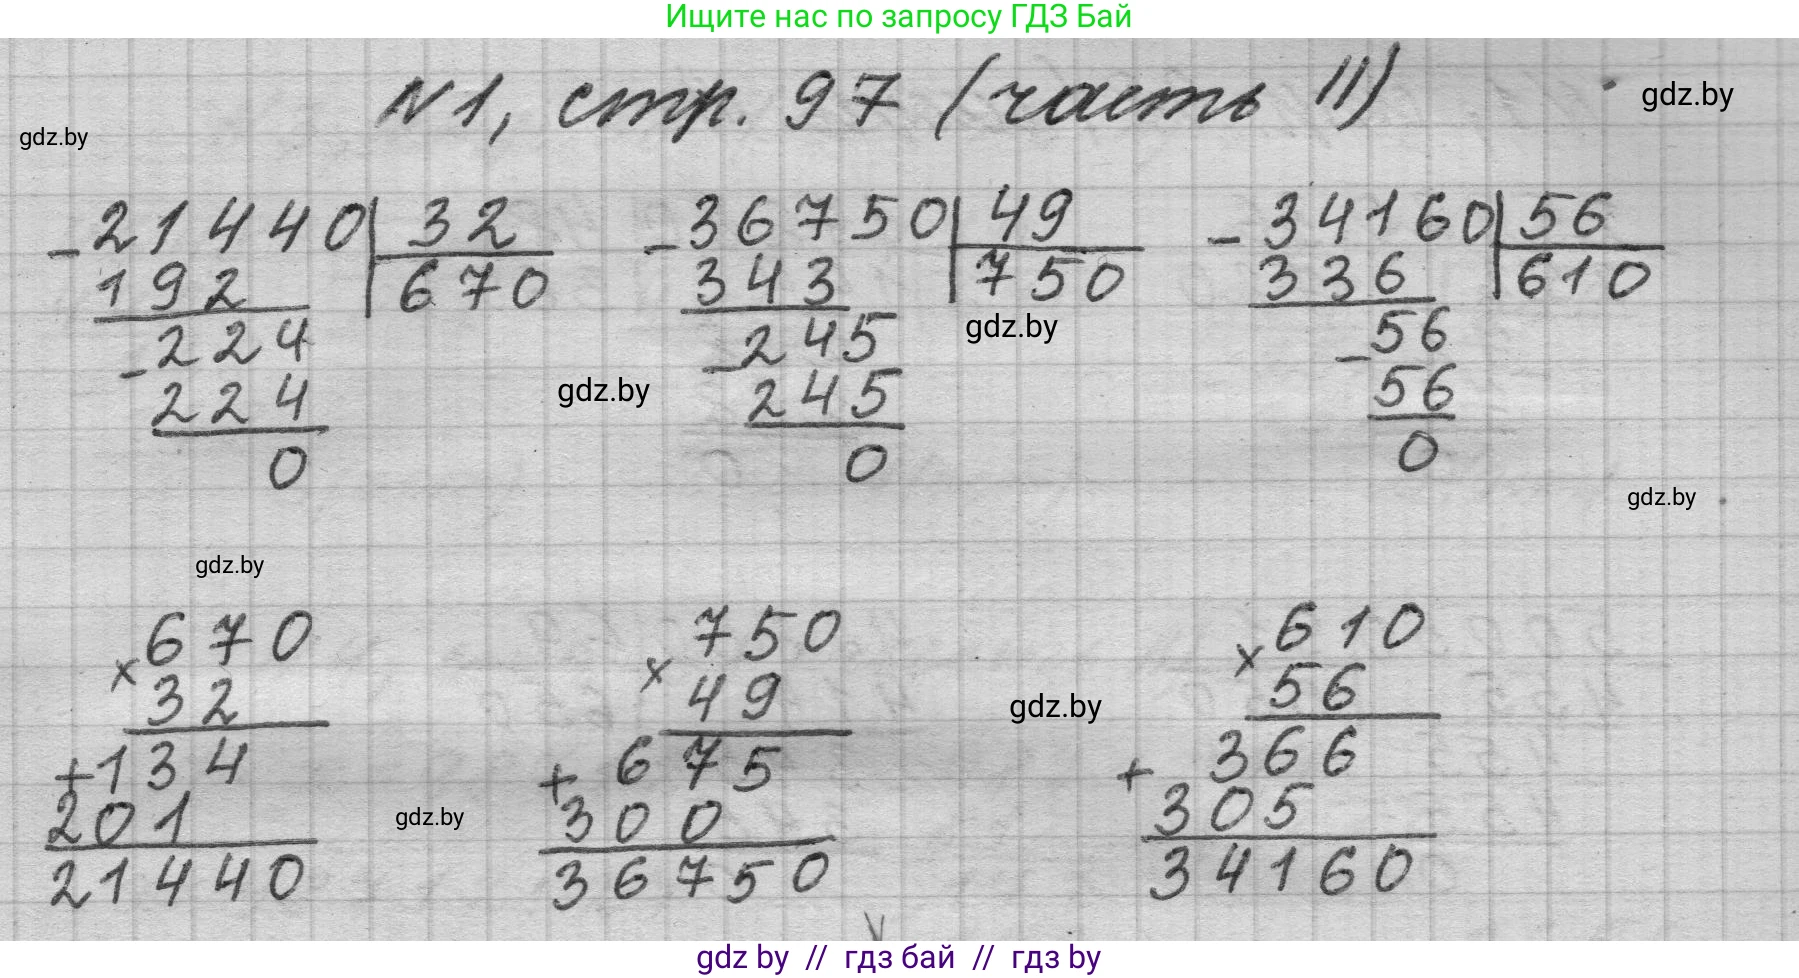 Ищите нас по запросу ГДЗ Бай
N1, стр. 97 (часть II)
gdz.by
gdz.by
- 21440 | 32
192 | 670
- 224
224
0
- 36750 | 49
343 | 750
- 245
245
0
- 34160 | 56
336 | 610
- 56
56
0
gdz.by
gdz.by
gdz.by
gdz.by
670
x 32
+ 134
201
21440
750
x 49
+ 675
300
36750
610
x 56
+ 366
305
34160
gdz.by
gdz.by
gdz by // гдз бай // гдз by